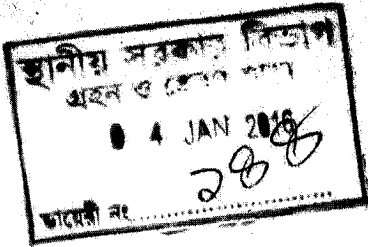 স্থানীয় সরকার বিভাগ
গ্রহন ও প্রেরণ শাখা
0 4 JAN 2016
২৪৪
ডায়েরী নং..............................